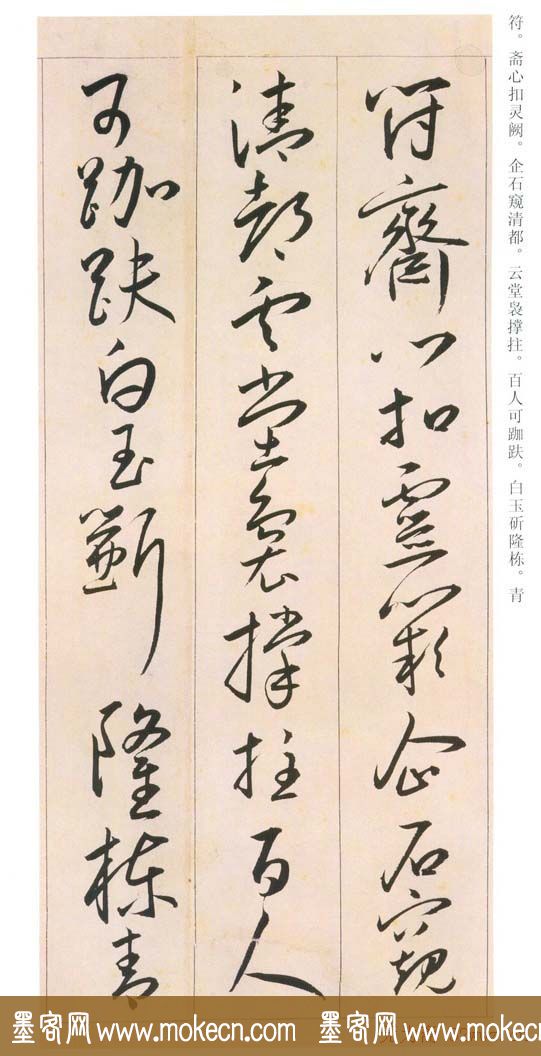 符。斋心扣灵阙。企石窥清都。云堂袅撑拄。百人可跏趺。白玉斫隆栋。青
符齋心扣靈闕企石窺
清都雲堂裊撐拄百人
可跏趺白玉斲隆棟青
墨客网 www.mokecn.com 墨客网 www.mokecn.com